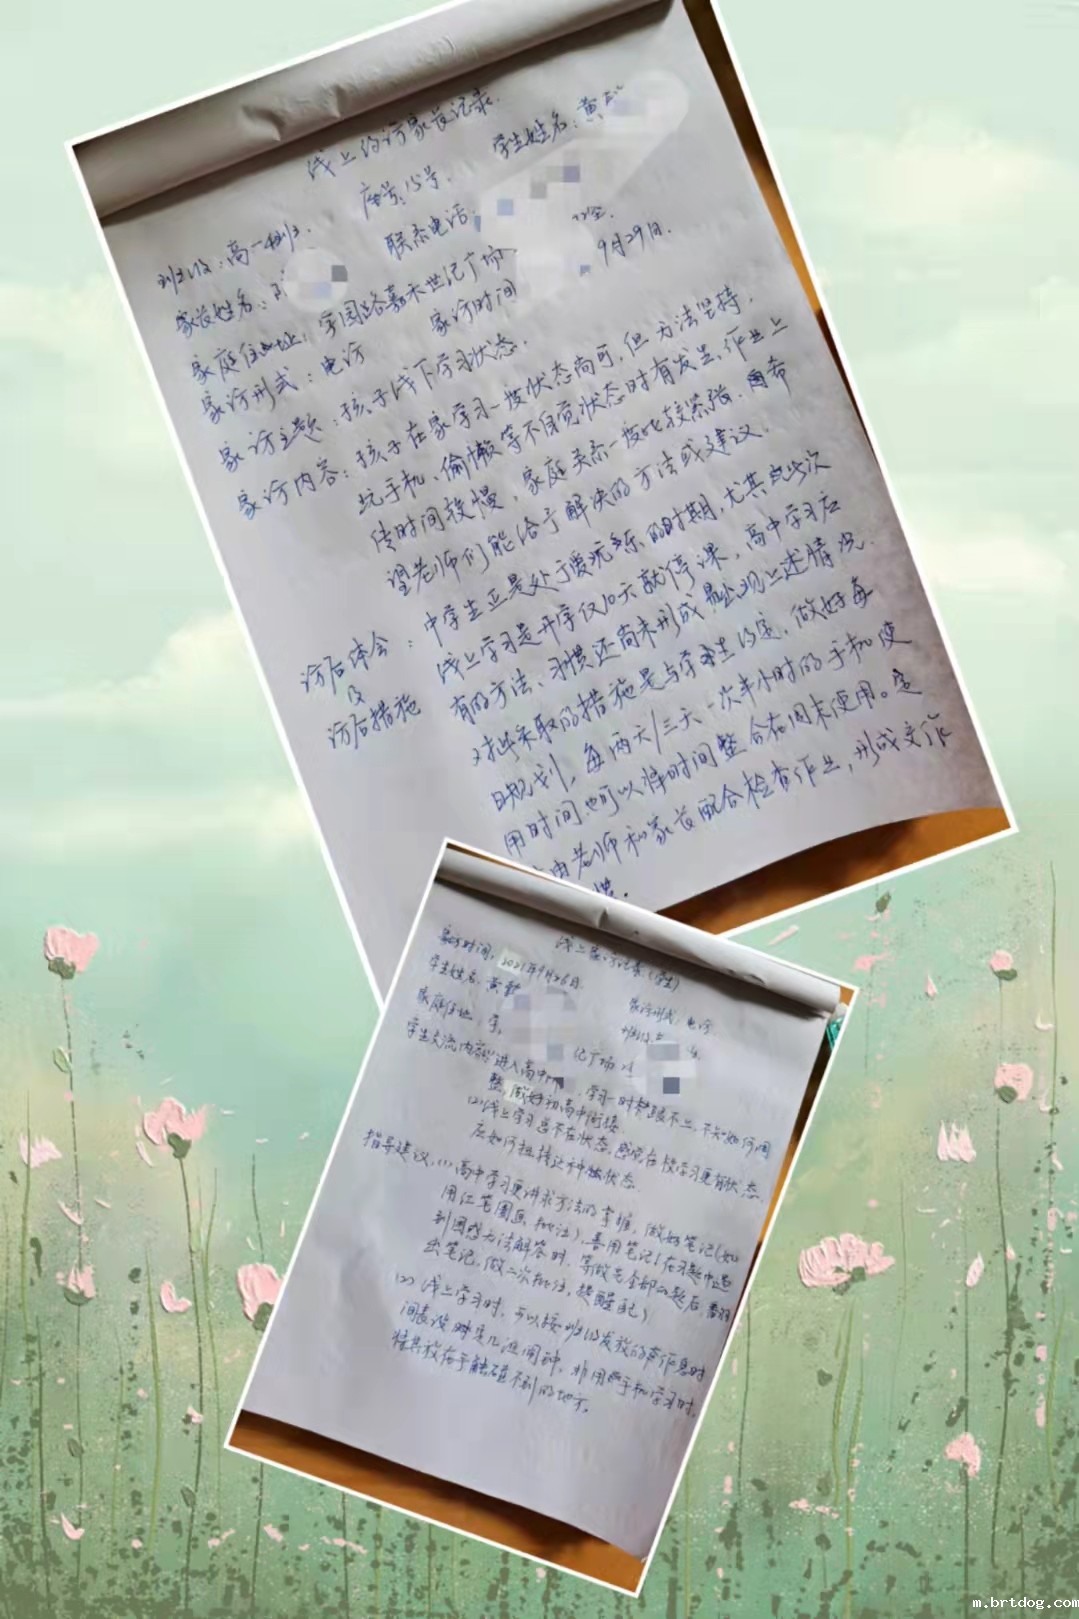 线上约访家长记录.
座号:15号. 学生姓名:黄
班级:高一4班. 联系电话:
家长姓名:
家庭住址:学园路嘉禾世纪广场
家访形式:电访 家访时间 9月29日.
家访主题:孩子线下学习状态.
家访内容:孩子在家学习一度状态尚可,但无法坚持.
玩手机、偷懒等不自觉状态时有发生,作业上
传时间较慢,家庭关系一度比较紧张.希
望老师们能给予解决的方法或建议.
访后体会及访后措施:中学生正是处于爱玩乐的时期,尤其此次
线上学习是开学仅10天就停课,高中学习应
有的方法、习惯还尚未形成易出现上述情况.
对此采取的措施是与学生约定,做好每
日规划,每两天/三天一次半小时的手机使
用时间也可以将时间整合在周末使用。
由老师和家长配合检查作业,形成
线上家访记录(学生)
家访时间:2021年9月26日. 家访形式:电访
学生姓名:黄 班级:
家庭住址:学 纪广场
学生交流内容:进入高中,学习一时 跟不上,不知如何调
整,做好初高中衔接.
(2)线上学习总不在状态,感觉在校学习更有状态.
应如何扭转这种状态.
指导建议:(1)高中学习更讲求方法的掌握,做好笔记(如
用红笔圈画批注),善用笔记(在习题中遇
到困惑无法解答时, 做完全部习题后
出笔记,做二次批注,提醒自己)
(2)线上学习时,可以按班级发放的作息时
间表设定几组闹钟,非用手机学习时,
将其放在手触碰不到的地方.
m.brtdog.com